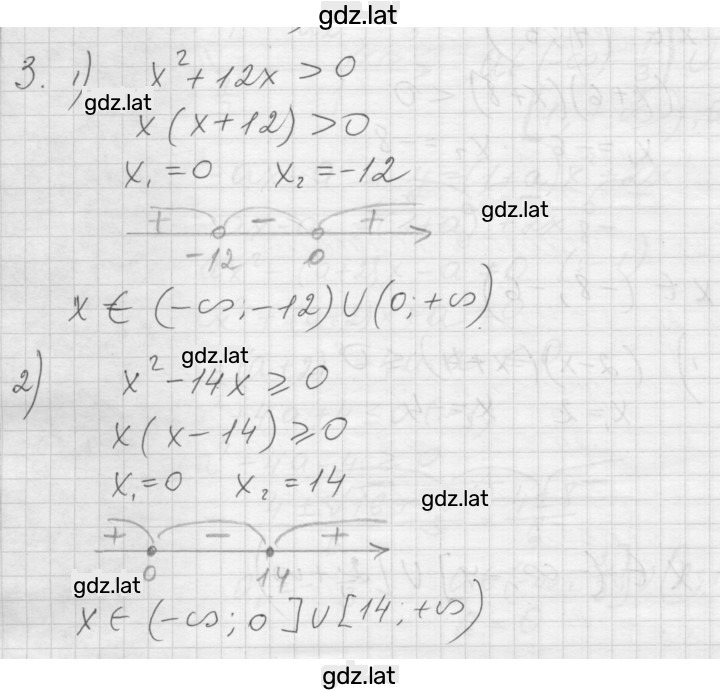 gdz.lat
3. 1) x² + 12x > 0
gdz.lat
x(x + 12) > 0
x₁ = 0 x₂ = -12
gdz.lat
+ - +
-12 0
x ∈ (-∞; -12) ∪ (0; +∞)
gdz.lat
2) x² - 14x ⩾ 0
x(x - 14) ⩾ 0
x₁ = 0 x₂ = 14
gdz.lat
+ - +
0 14
gdz.lat
x ∈ (-∞; 0] ∪ [14; +∞)
gdz.lat